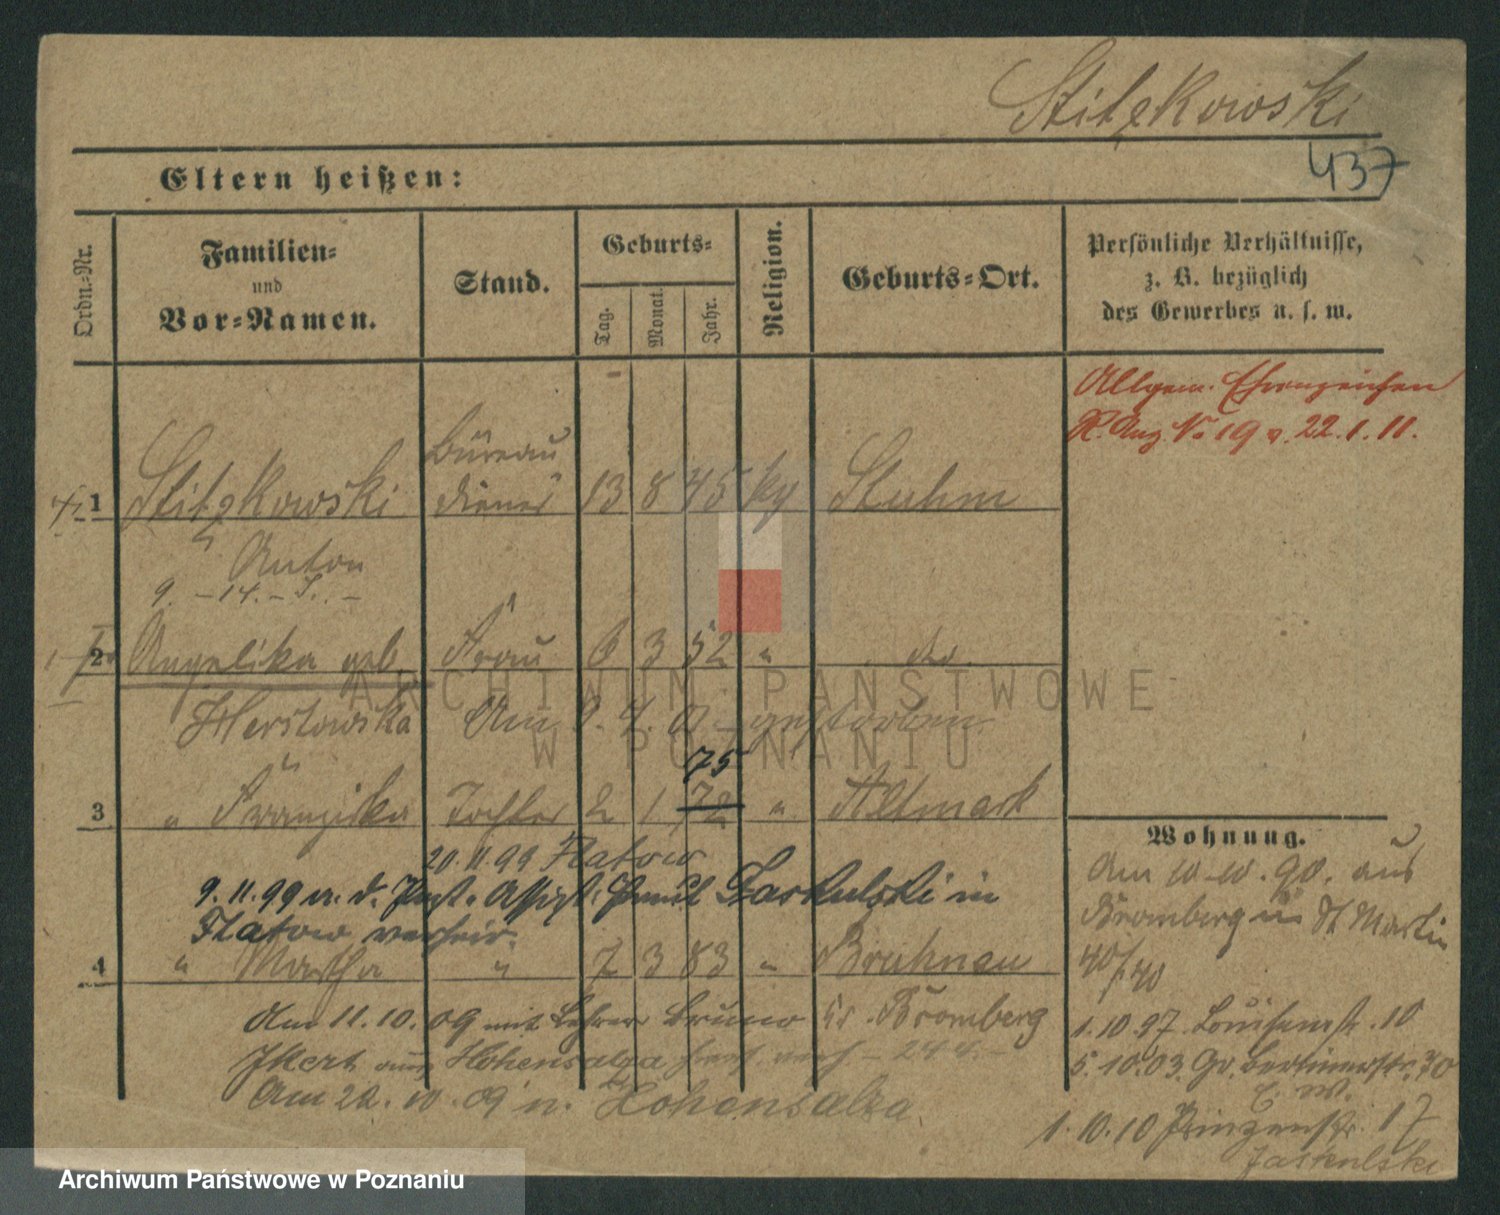 Stitzkowski
437
Eltern heißen:
Ordn.-Nr.
Familien-
und
Vor-Namen.
Stand.
Geburts-
Tag.
Monat.
Jahr.
Religion.
Geburts-Ort.
Persönliche Verhältnisse,
z. B. bezüglich
des Gewerbes u. s. w.
Allgem. Ehrenzeichen
R. Anz. No 19 v. 22.1.11.
Büreau
1 Stitzkowski diener 13 8 45 kg Stuhm
Anton
9. -14.-
2 Angelika geb. Frau 6 3 52 " do.
Am 9. 4. 0 gestorben
75
3 " Franziska Tochter 2 1 72 " Altmark
20.11.99 Flatow
9.11.99 m. d. Post-Assist. Jaskulski in
Flatow verheir.
4 " Martha " 7 3 83 " Bruhnau
Am 11.10.09 mit Lehrer Bruno Kr. Bromberg
Ikert aus Hohensalza
Am 20.10.09 n. Hohensalza
Wohnung.
Am 10.10.90. aus
Bromberg St Martin
40/
1.10.97. Louisenstr. 10
5.10.03. Gr. Berlinerstr. 70
1.10.10 Prinzenstr. 17
Jaskulski
ARCHIWUM PAŃSTWOWE
W POZNANIU
Archiwum Państwowe w Poznaniu